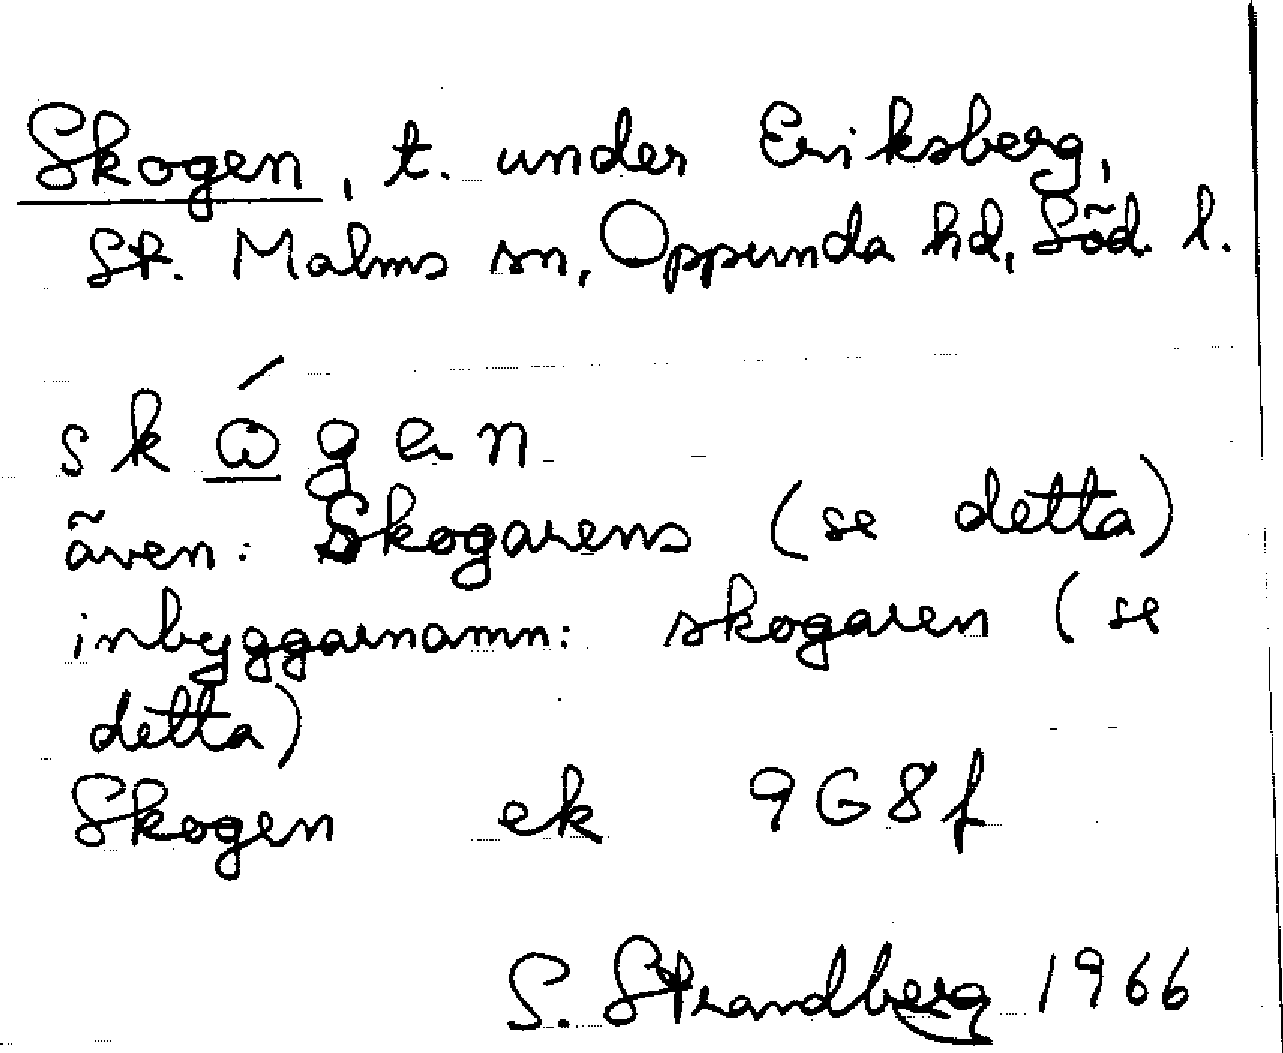 Skogen, t. under Eriksberg,
St. Malms sn, Oppunda hd, Söd. l.
skǿgen
även: Skogarens (se detta)
inbyggarnamn: skogaren (se
detta)
Skogen ek 9G8f
S. Strandberg 1966